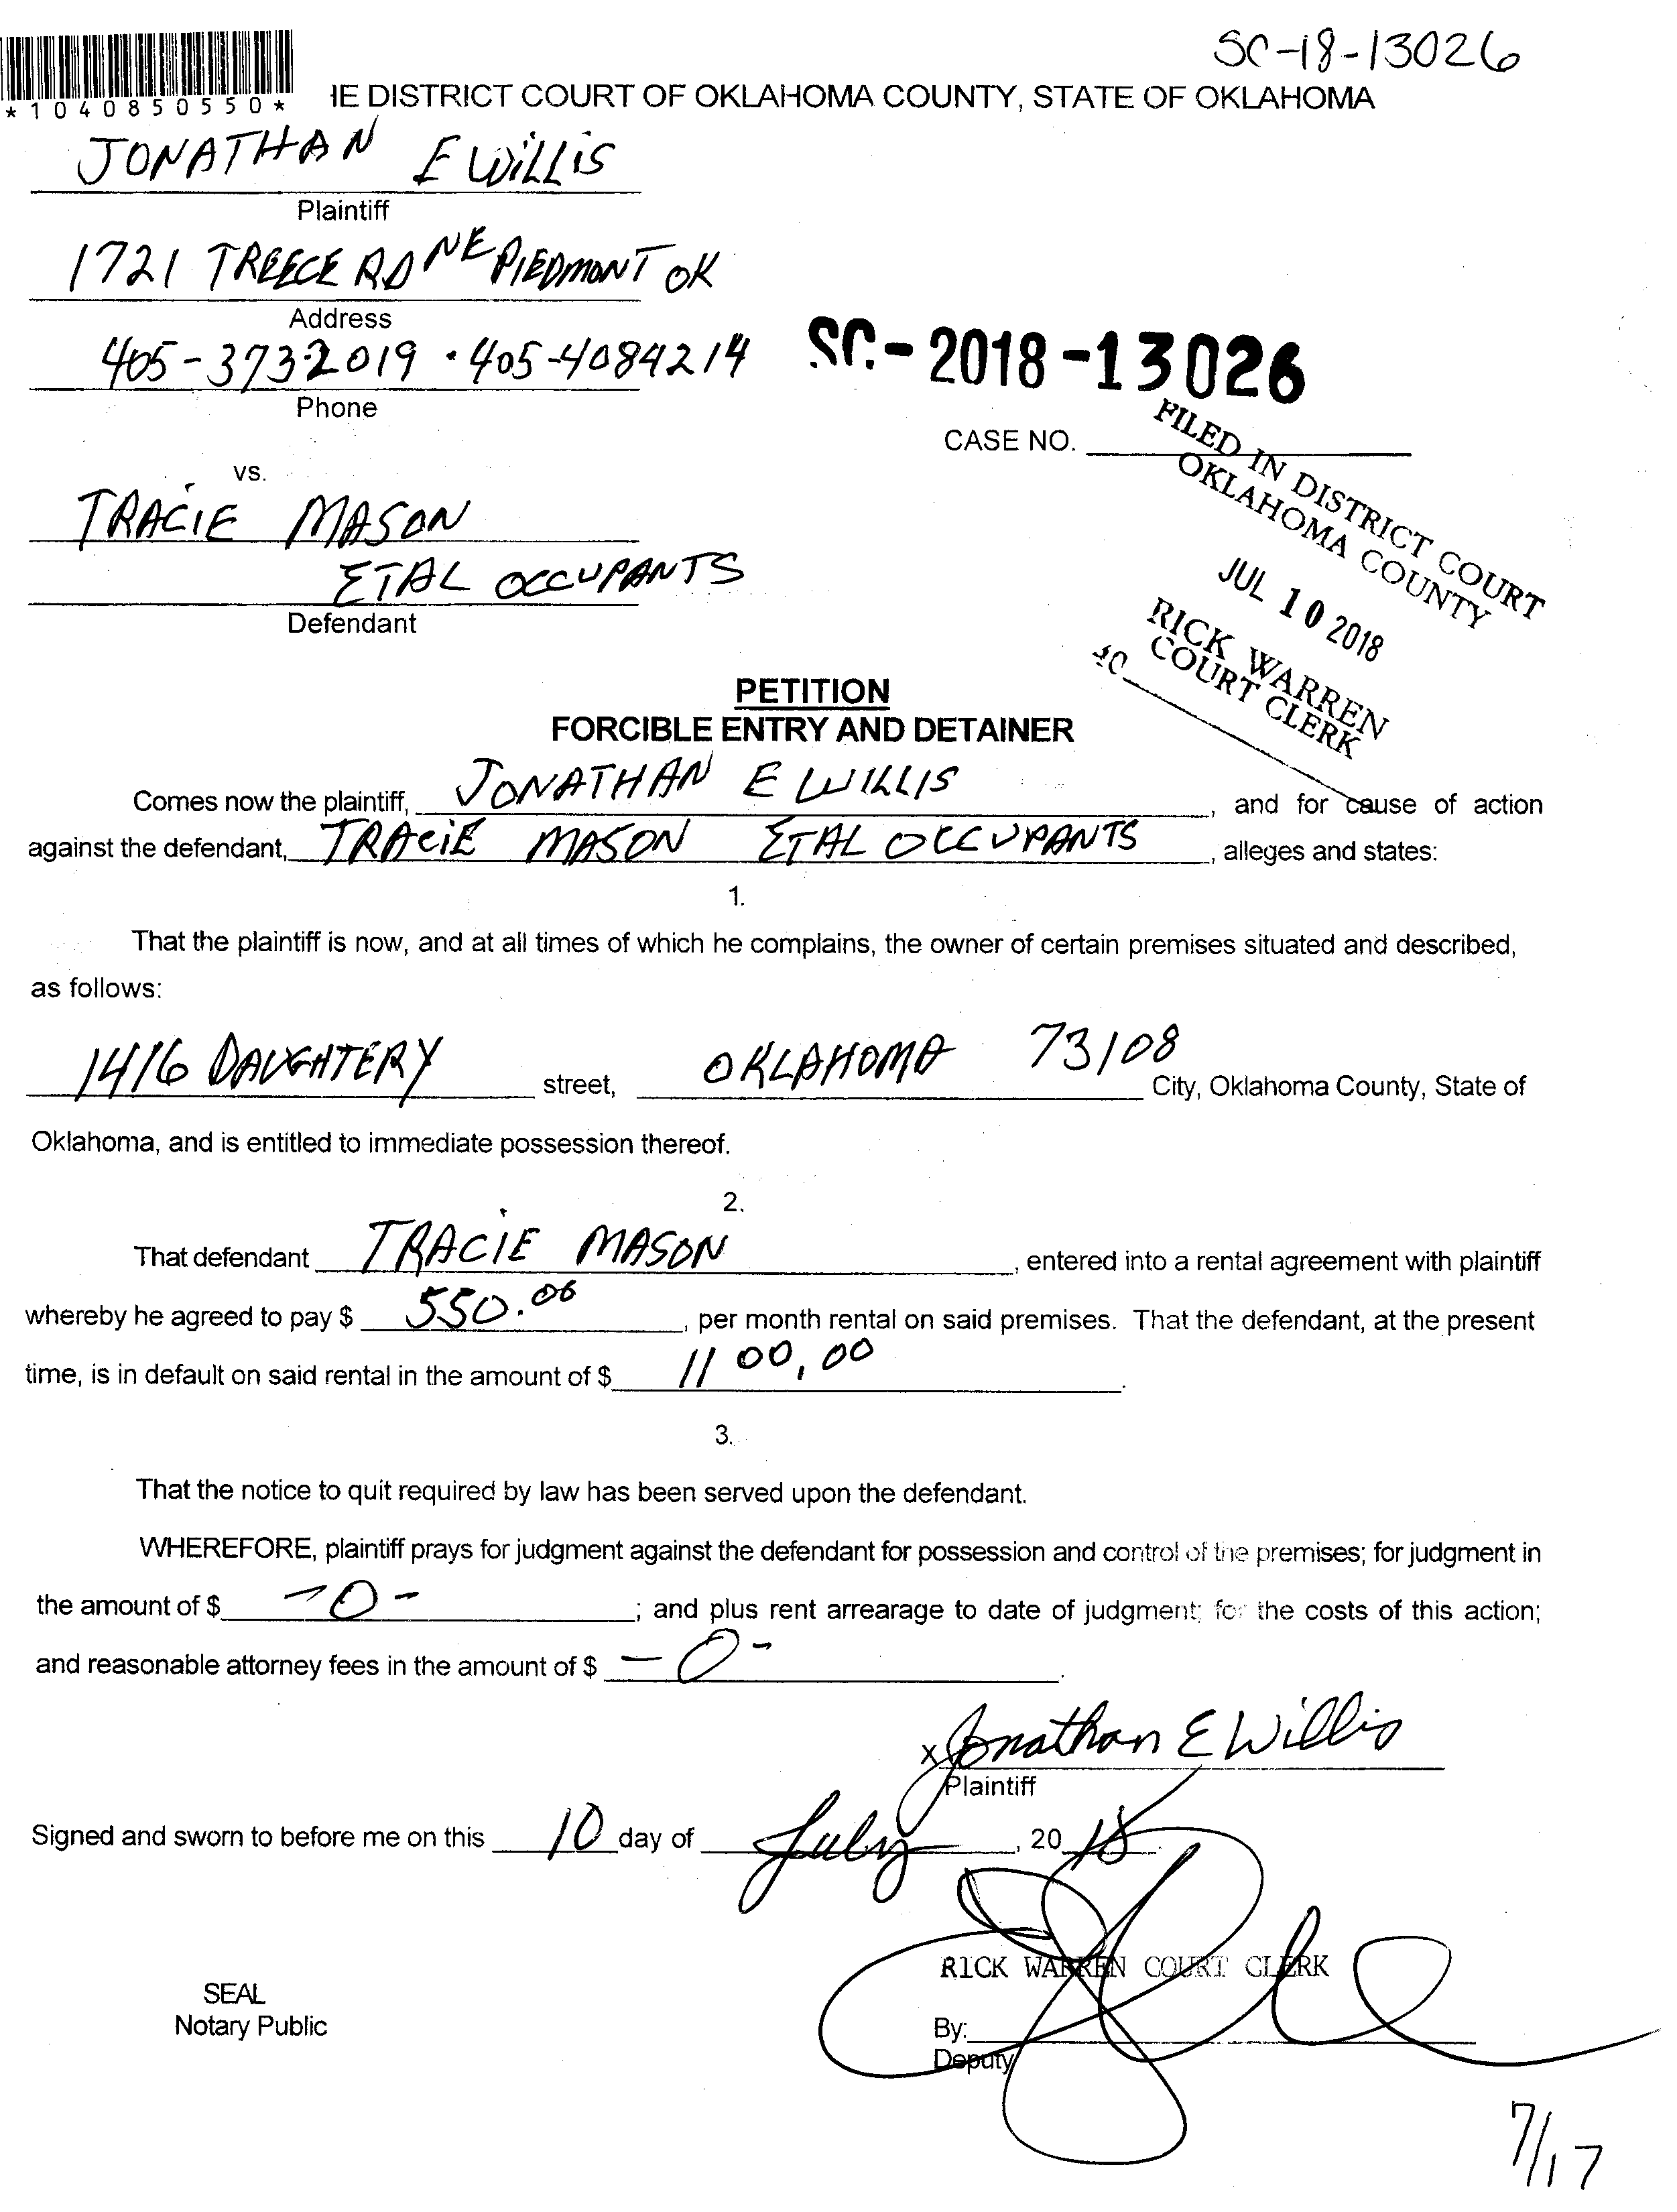 SC-18-13026
*1040850550*
IE DISTRICT COURT OF OKLAHOMA COUNTY, STATE OF OKLAHOMA
JONATHAN E WILLIS
Plaintiff
1721 TREECE RD NE PIEDMONT OK
Address
405-373-2019 · 405-4084214
Phone
SC-2018-13026
CASE NO.
FILED IN DISTRICT COURT
OKLAHOMA COUNTY
JUL 10 2018
RICK WARREN
COURT CLERK
vs.
TRACIE MASON
ETAL OCCUPANTS
Defendant
PETITION
FORCIBLE ENTRY AND DETAINER
Comes now the plaintiff, JONATHAN E WILLIS, and for cause of action
against the defendant, TRACIE MASON ETAL OCCUPANTS, alleges and states:
1.
That the plaintiff is now, and at all times of which he complains, the owner of certain premises situated and described,
as follows:
1416 DAUGHTERY street, OKLAHOMA 73108 City, Oklahoma County, State of
Oklahoma, and is entitled to immediate possession thereof.
2.
That defendant TRACIE MASON, entered into a rental agreement with plaintiff
whereby he agreed to pay $ 550.00, per month rental on said premises. That the defendant, at the present
time, is in default on said rental in the amount of $ 1100,00.
3.
That the notice to quit required by law has been served upon the defendant.
WHEREFORE, plaintiff prays for judgment against the defendant for possession and control of the premises; for judgment in
the amount of $ -0-; and plus rent arrearage to date of judgment; for the costs of this action;
and reasonable attorney fees in the amount of $ -0-.
x Jonathan E Willis
Plaintiff
Signed and sworn to before me on this 10 day of July, 2018.
RICK WARREN COURT CLERK
SEAL
Notary Public
By:
Deputy
7/17